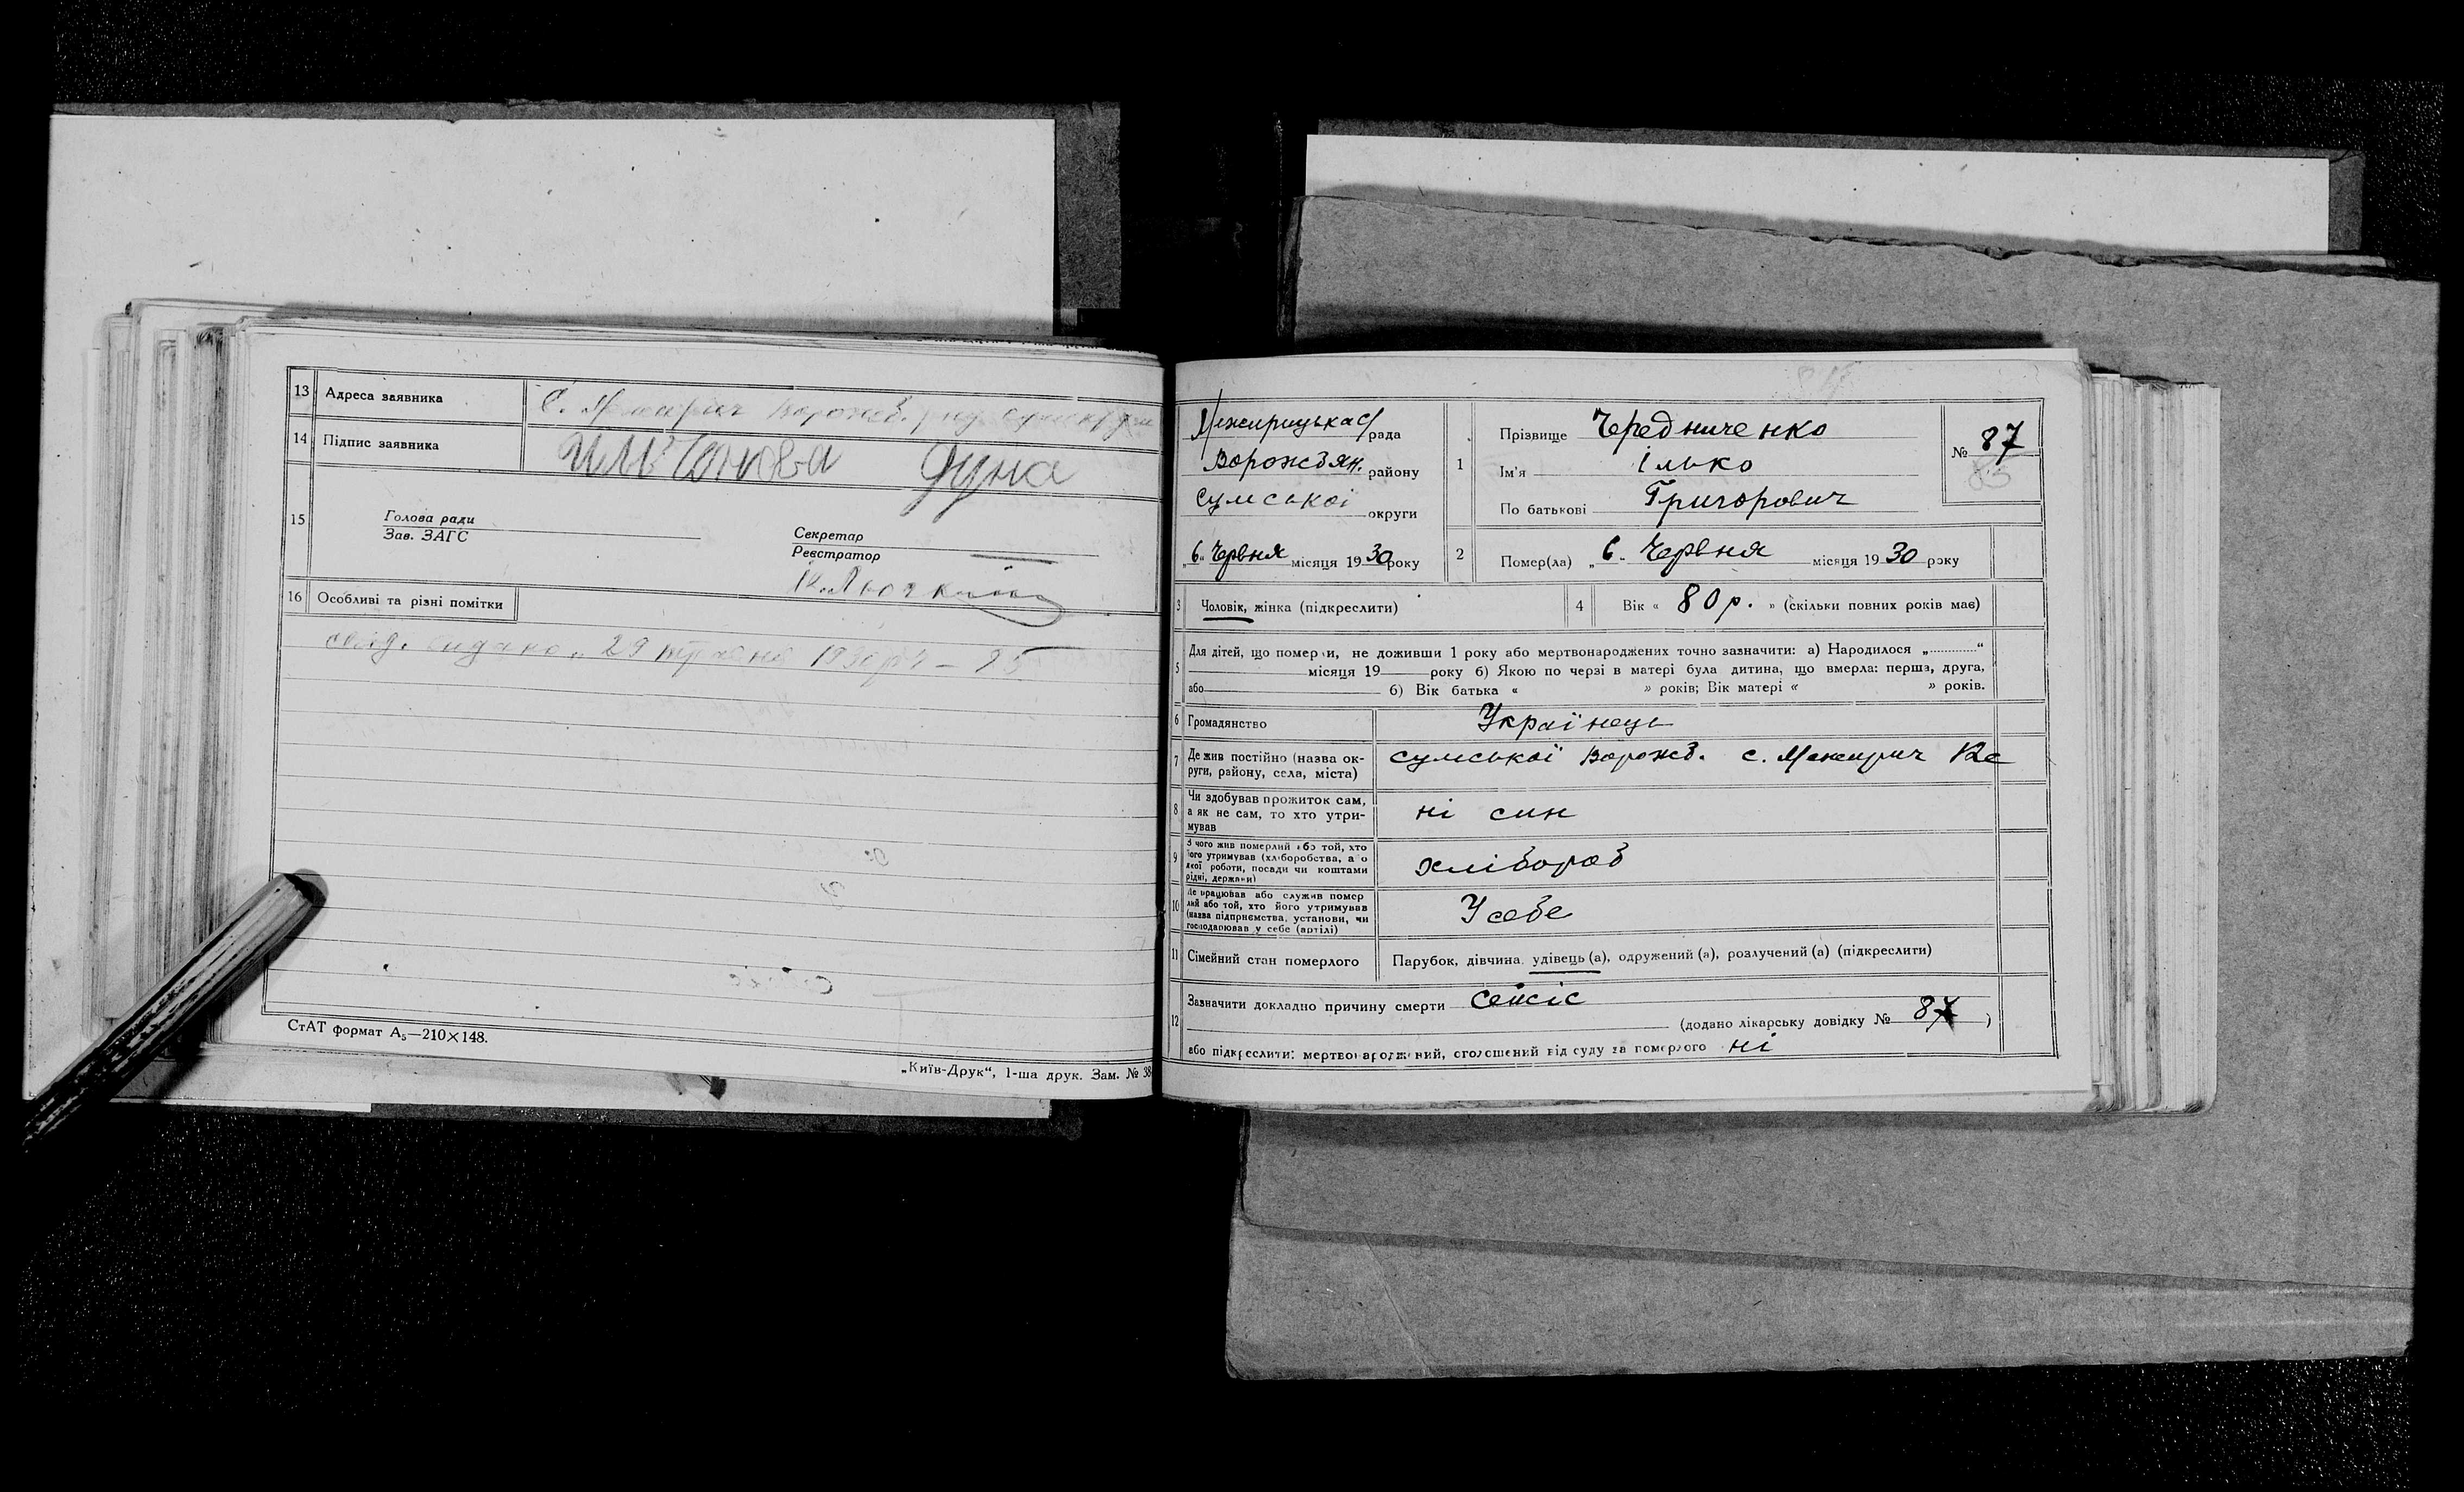 13 Адреса заявника С. Межирич Ворожб.
14 Підпис заявника
15 Голова ради
Зав. ЗАГС
Секретар
Реєстратор
16 Особливі та різні помітки
свид. видано 29 травня 1930 р
СтАТ формат А₅—210×148.
„Київ-Друк“, 1-ша друк. Зам. № 38
Межирицька с/рада
Ворожбян. району
Сумської округи
„6„ Червня місяця 1930 року
1 Прізвище Чередниченко
Ім'я Ілько
По батькові Григорович
№ 87
85
2 Помер(ла) „6„ Червня місяця 1930 року
3 Чоловік, жінка (підкреслити)
4 Вік « 80 р. » (скільки повних років має)
5 Для дітей, що померли, не доживши 1 року або мертвонароджених точно зазначити: а) Народилося „ “
місяця 19 року б) Якою по черзі в матері була дитина, що вмерла: перша, друга,
або б) Вік батька « » років; Вік матері « » років.
6 Громадянство Українець
7 Де жив постійно (назва ок-
руги, району, села, міста) Сумської Ворожб. с. Межирич
8 Чи здобував прожиток сам,
а як не сам, то хто утри-
мував ні син
9 З чого жив померлий або той, хто
його утримував (хліборобства, а о
якої роботи, посади чи коштами
рідні, держави) хлібороб
10 Де працював або служив помер
лий або той, хто його утримував
(назва підприємства, установи, чи
господарював у себе (артілі) У себе
11 Сімейний стан померлого Парубок, дівчина, удівець (а), одружений (а), розлучений (а) (підкреслити)
12 Зазначити докладно причину смерти Сепсіс
(додано лікарську довідку № 87 )
або підкреслити: мертвонароджений, оголошений від суду за померлого ні